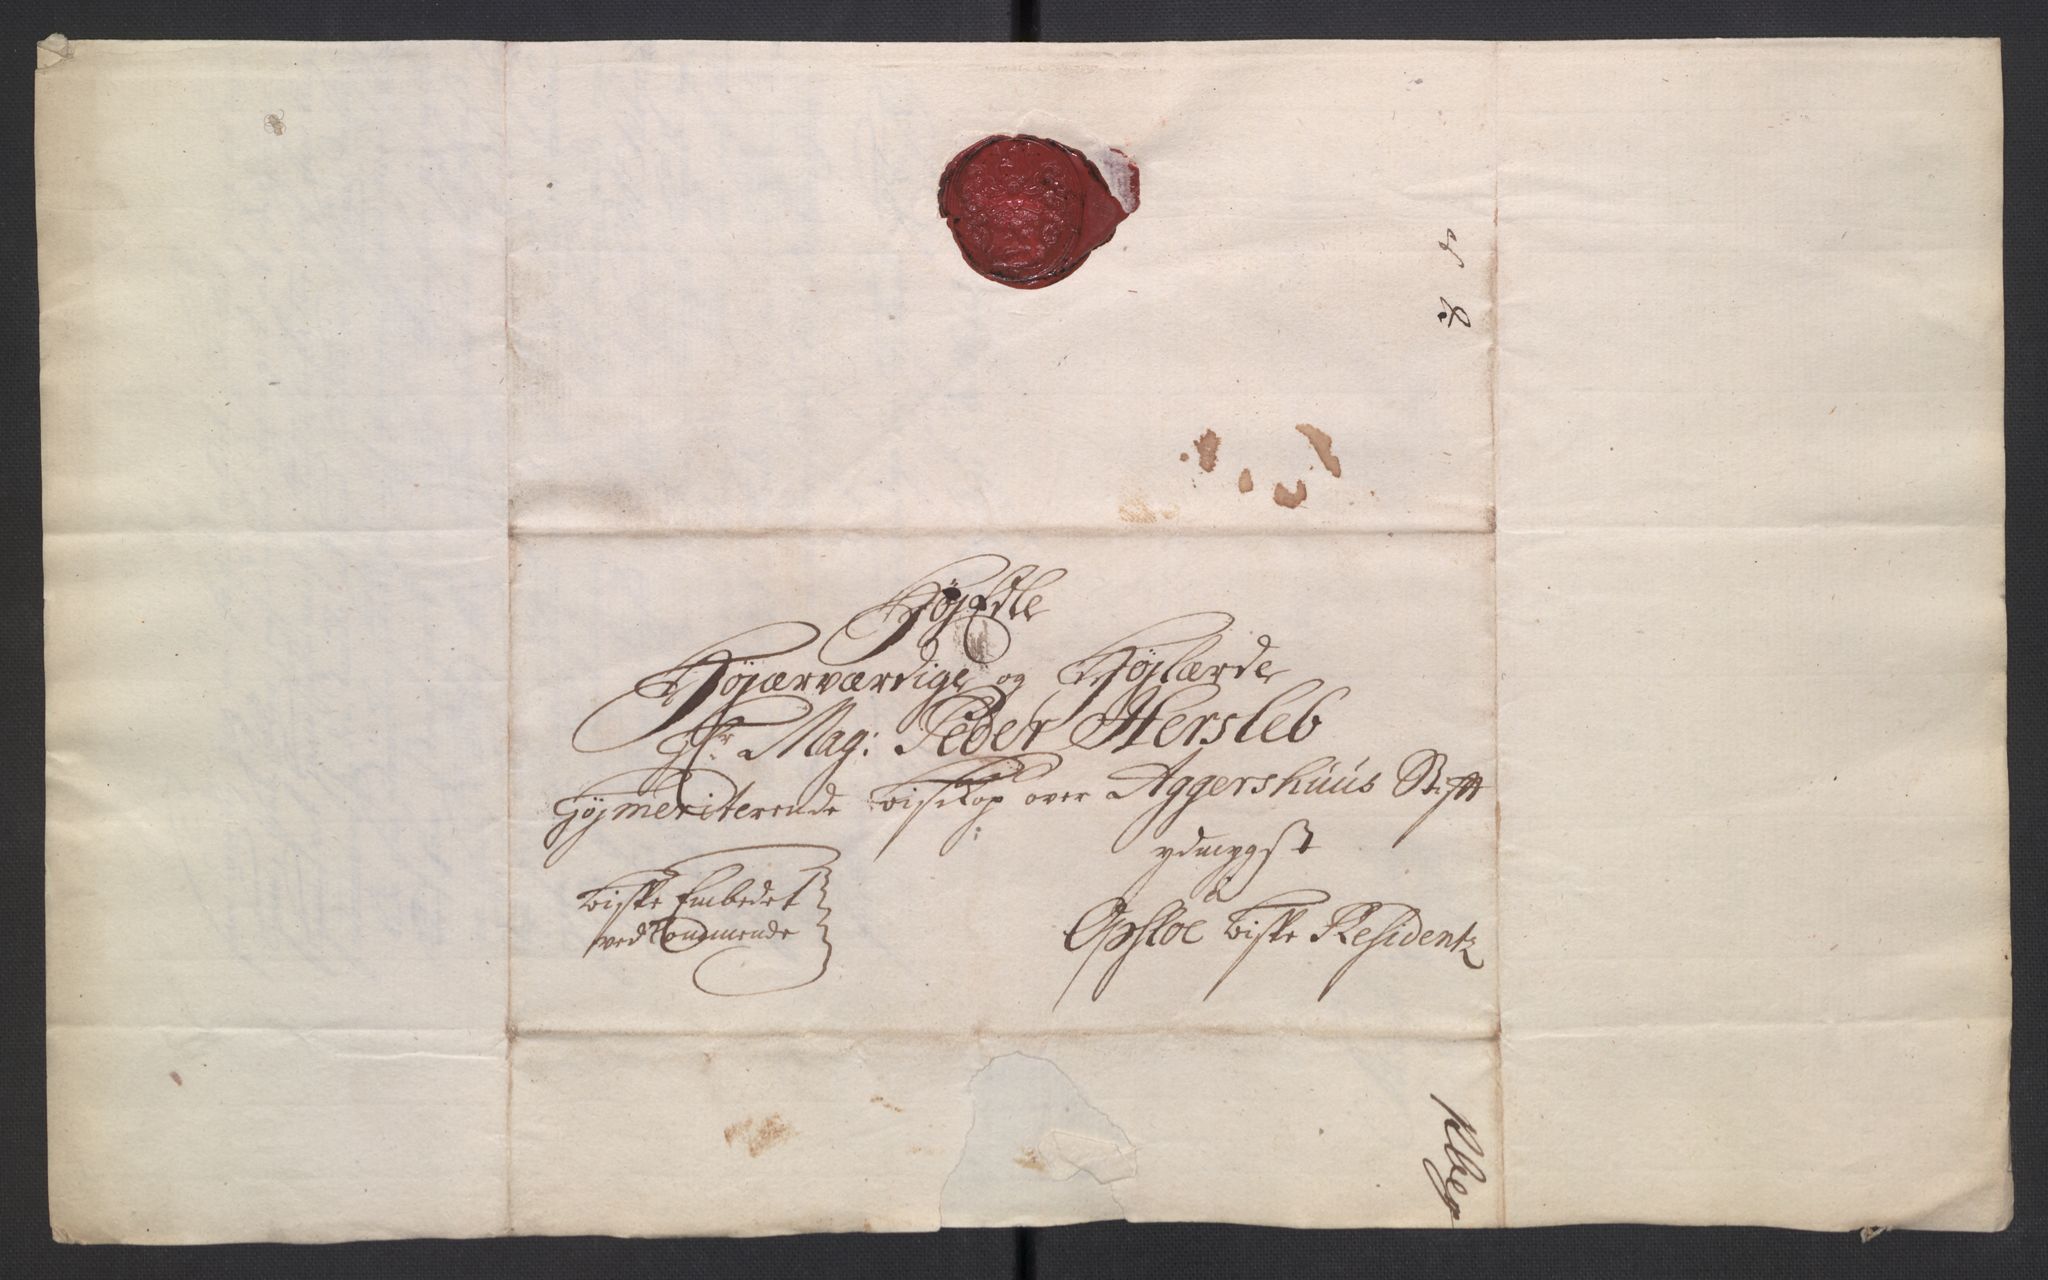 HøyEdle
Høyærværdige og Høylærde
Hr Mag: Peder Hersleb
Høymeriterende Biskop over Aggershuus Stifft
ydmygst
a
Opsloe Bispe Residentz
Bispe Embedet
vedkommende